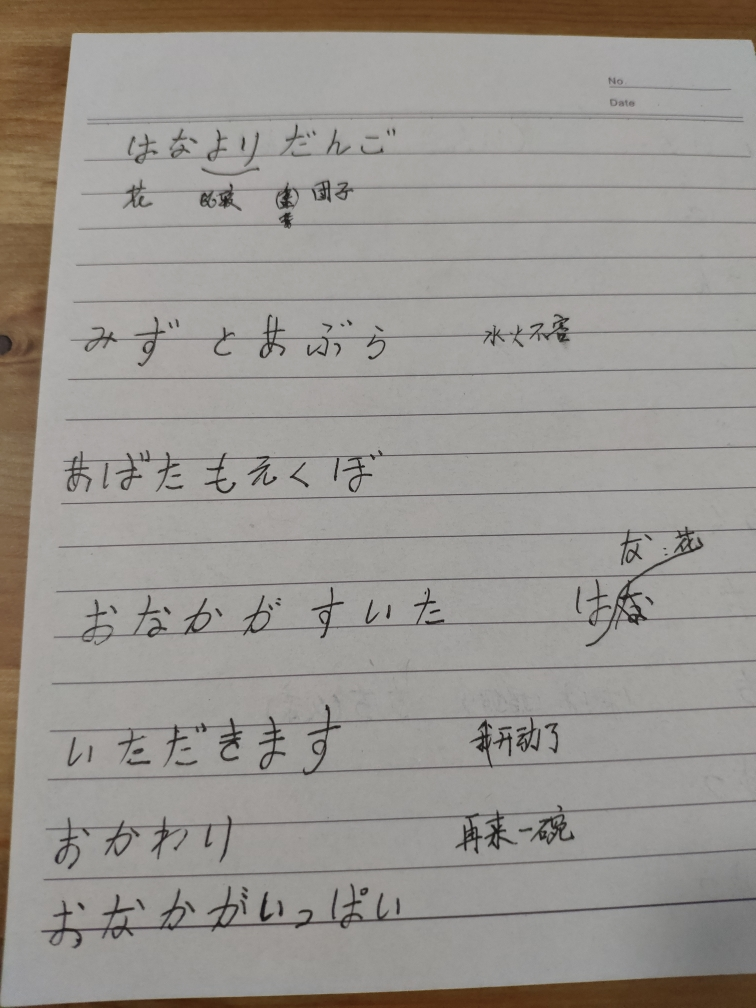 No
Date
はなよりだんご
花 比較 団子
みずとあぶら 水火不容
あばたもえくぼ
な:花
おなかがすいた はな
いただきます 我开动了
おかわり 再来一碗
おなかがいっぱい